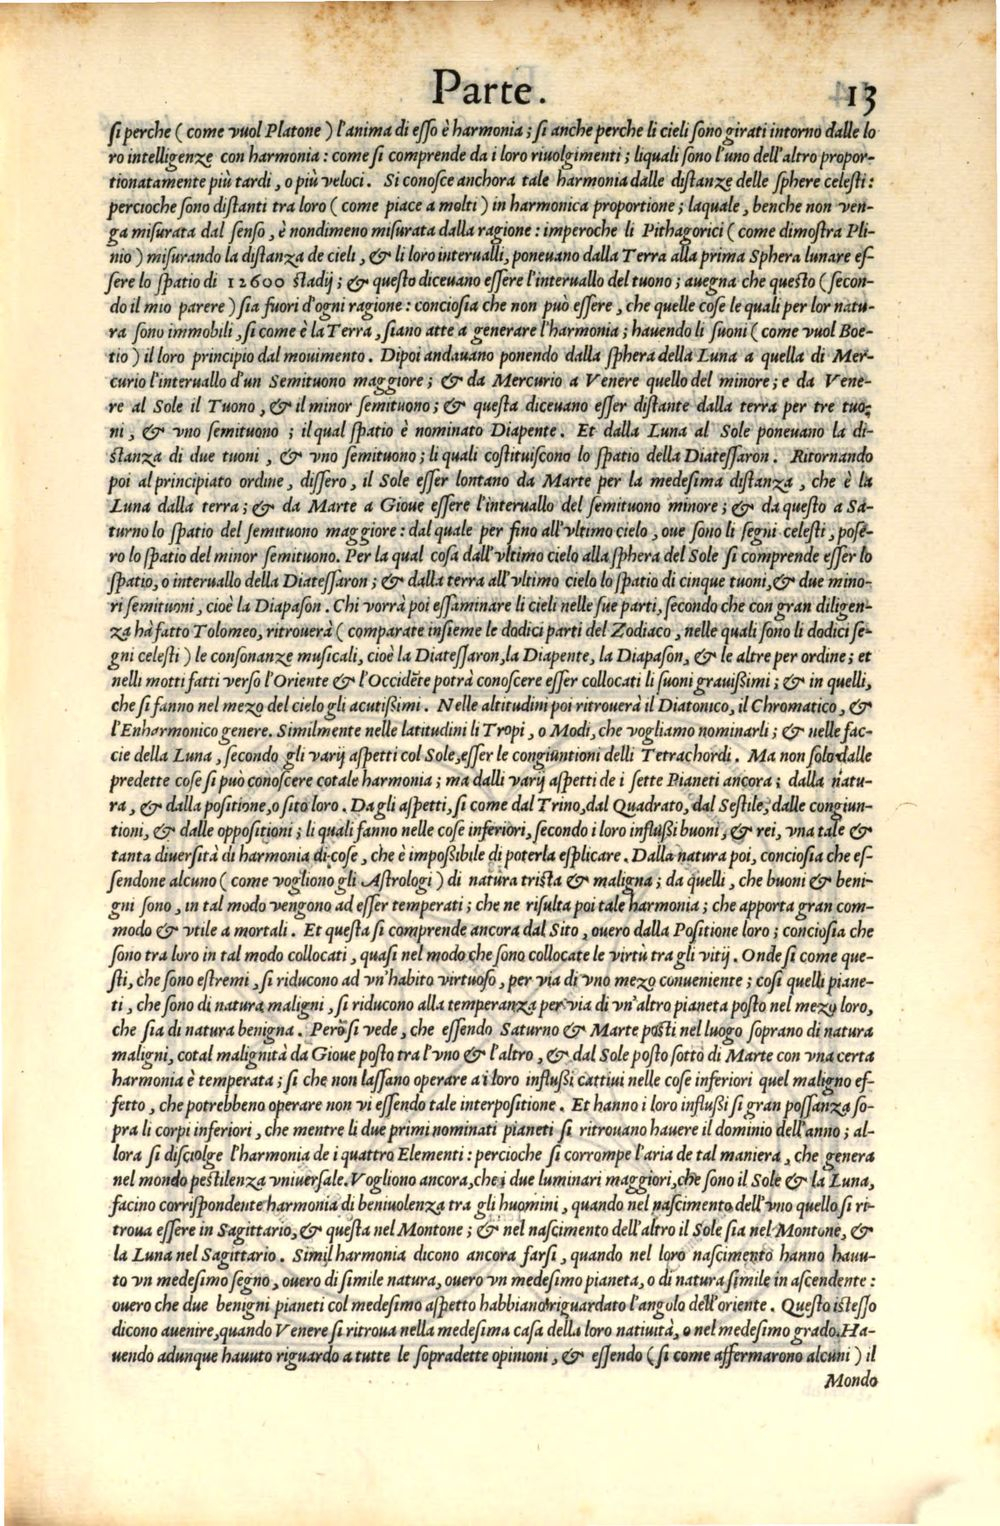 Parte. 13
ſi perche ( come vuol Platone ) l'anima di eſſo è harmonia ; ſi anche perche li cieli ſono girati intorno dalle lo
ro intelligenze con harmonia : come ſi comprende da i loro riuolgimenti ; liquali ſono l'uno dell'altro propor-
tionatamente più tardi , o più veloci . Si conoſce anchora tale harmonia dalle diſtanze delle ſphere celeſti :
percioche ſono diſtanti tra loro ( come piace a molti ) in harmonica proportione ; laquale , benche non ven-
ga miſurata dal ſenſo , è nondimeno miſurata dalla ragione : imperoche li Pithagorici ( come dimoſtra Pli-
nio ) miſurando la diſtanza de cieli , & li loro interualli, poneuano dalla Terra alla prima Sphera lunare eſ-
ſere lo ſpatio di 12600 ſtadij ; & queſto diceuano eſſere l'interuallo del tuono ; auegna che queſto ( ſecon-
do il mio parere ) ſia fuori d'ogni ragione : conciosia che non può eſſere , che quelle coſe le quali per lor natu-
ra ſono immobili , ſi come è la Terra , ſiano atte a generare l'harmonia ; hauendo li ſuoni ( come vuol Boe-
tio ) il loro principio dal mouimento . Dipoi andauano ponendo dalla ſphera della Luna a quella di Mer-
curio l'interuallo d'un Semituono maggiore ; & da Mercurio a Venere quello del minore ; e da Vene-
re al Sole il Tuono , & il minor ſemituono ; & queſta diceuano eſſer diſtante dalla terra per tre tuo-
ni , & vno ſemituono ; il qual ſpatio è nominato Diapente . Et dalla Luna al Sole poneuano la di-
ſtanza di due tuoni , & vno ſemituono ; li quali coſtituiſcono lo ſpatio della Diateſſaron . Ritornando
poi al principiato ordine , diſſero , il Sole eſſer lontano da Marte per la medeſima diſtanza , che è la
Luna dalla terra ; & da Marte a Gioue eſſere l'interuallo del ſemituono minore ; & da queſto a Sa-
turno lo ſpatio del ſemituono maggiore : dal quale per fino all'vltimo cielo , oue ſono li ſegni celeſti , poſe-
ro lo ſpatio del minor ſemituono. Per la qual coſa dall'vltimo cielo alla ſphera del Sole ſi comprende eſſer lo
ſpatio, o interuallo della Diateſſaron ; & dalla terra all'vltimo cielo lo ſpatio di cinque tuoni, & due mino-
ri ſemituoni , cioè la Diapaſon . Chi vorrà poi eſſaminare li cieli nelle ſue parti, ſecondo che con gran diligen-
za hà fatto Tolomeo, ritrouerà ( comparate inſieme le dodici parti del Zodiaco , nelle quali ſono li dodici ſe-
gni celeſti ) le conſonanze muſicali, cioè la Diateſſaron, la Diapente, la Diapaſon, & le altre per ordine ; et
nelli motti fatti verſo l'Oriente & l'Occidẽte potrà conoſcere eſſer collocati li ſuoni grauißimi ; & in quelli,
che ſi fanno nel mezo del cielo gli acutißimi . Nelle altitudini poi ritrouerà il Diatonico, il Chromatico , &
l'Enharmonico genere. Similmente nelle latitudini li Tropi , o Modi, che vogliamo nominarli ; & nelle fac-
cie della Luna , ſecondo gli varij aſpetti col Sole, eſſer le congiuntioni delli Tetrachordi . Ma non ſolo dalle
predette coſe ſi può conoſcere cotale harmonia ; ma dalli varij aſpetti de i ſette Pianeti ancora ; dalla natu-
ra , & dalla poſitione, o ſito loro . Da gli aſpetti, ſi come dal Trino, dal Quadrato, dal Seſtile, dalle congiun-
tioni, & dalle oppoſitioni ; li quali fanno nelle coſe inferiori, ſecondo i loro influßi buoni, & rei, vna tale &
tanta diuerſità di harmonia di coſe , che è impoßibile di poterla eſplicare . Dalla natura poi, conciosia che eſ-
ſendone alcuno ( come vogliono gli Aſtrologi ) di natura triſta & maligna ; da quelli , che buoni & beni-
gni ſono , in tal modo vengono ad eſſer temperati ; che ne riſulta poi tale harmonia ; che apporta gran com-
modo & vtile a mortali . Et queſta ſi comprende ancora dal Sito , ouero dalla Poſitione loro ; conciosia che
ſono tra loro in tal modo collocati , quaſi nel modo che ſono collocate le virtù tra gli vitij . Onde ſi come que-
ſti, che ſono eſtremi , ſi riducono ad vn'habito virtuoſo , per via di vno mezo conueniente ; coſi quelli piane-
ti , che ſono di natura maligni , ſi riducono alla temperanza per via di vn'altro pianeta poſto nel mezo loro,
che ſia di natura benigna . Però ſi vede , che eſſendo Saturno & Marte poſti nel luogo ſoprano di natura
maligni, cotal malignità da Gioue poſto tra l'vno & l'altro , & dal Sole poſto ſotto di Marte con vna certa
harmonia è temperata ; ſi che non laſſano operare a i loro influßi cattiui nelle coſe inferiori quel maligno ef-
fetto , che potrebbeno operare non vi eſſendo tale interpoſitione . Et hanno i loro influßi ſi gran poſſanza ſo-
pra li corpi inferiori , che mentre li due primi nominati pianeti ſi ritrouano hauere il dominio dell'anno ; al-
lora ſi diſciolge l'harmonia de i quattro Elementi : percioche ſi corrompe l'aria de tal maniera , che genera
nel mondo peſtilenza vniuerſale. Vogliono ancora, che i due luminari maggiori, che ſono il Sole & la Luna,
facino corriſpondente harmonia di beniuolenza tra gli huomini , quando nel naſcimento dell'vno quello ſi ri-
troua eſſere in Sagittario, & queſta nel Montone ; & nel naſcimento dell'altro il Sole ſia nel Montone, &
la Luna nel Sagittario . Simil harmonia dicono ancora farſi , quando nel loro naſcimento hanno hauu-
to vn medeſimo ſegno , ouero di ſimile natura, ouero vn medeſimo pianeta, o di natura ſimile in aſcendente :
ouero che due benigni pianeti col medeſimo aſpetto habbiano riguardato l'angolo dell'oriente . Queſto iſteſſo
dicono auenire, quando Venere ſi ritroua nella medeſima caſa della loro natiuità, o nel medeſimo grado. Ha-
uendo adunque hauuto riguardo a tutte le ſopradette opinioni , & eſſendo ( ſi come affermarono alcuni ) il
Mondo